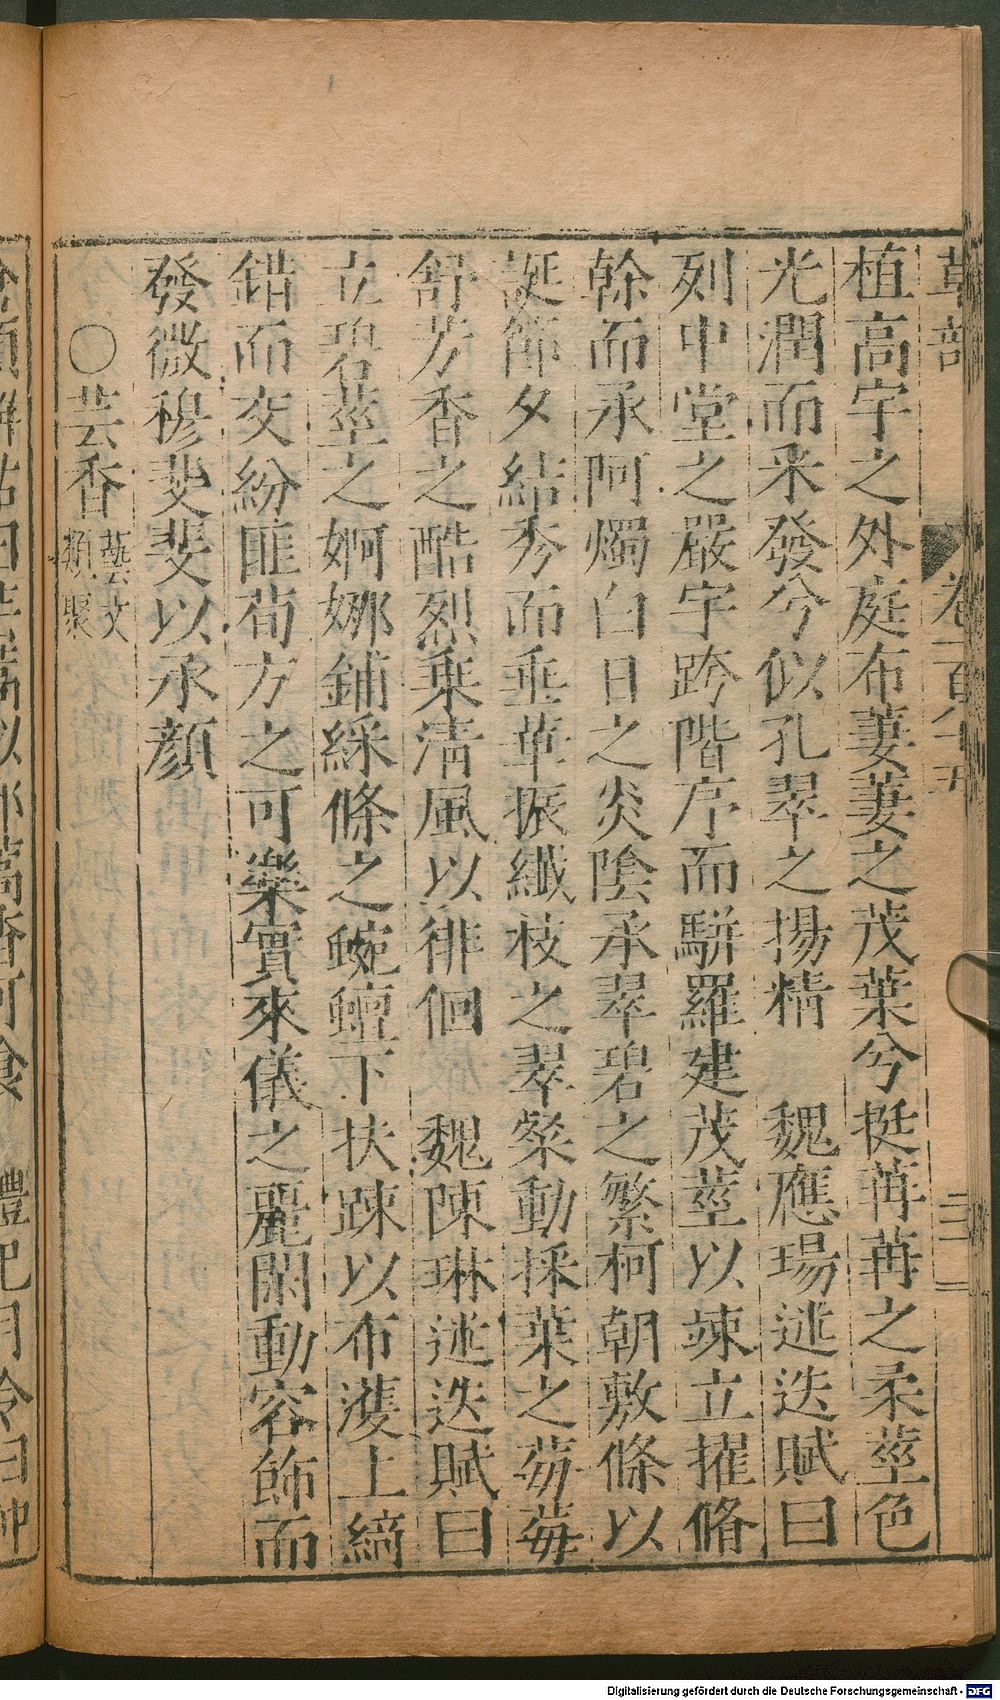 草部 卷一百八十五 三
植高宇之外庭布萋萋之茂葉兮挺苒苒之柔莖色
光潤而采發兮似孔翠之揚精 魏應瑒迷迭賦曰
列中堂之嚴宇跨階序而駢羅建茂莖以竦立擢脩
幹而承阿燭白日之炎陰承翠碧之繁柯朝敷條以
誕節夕結秀而垂華振纖枝之翠粲動採葉之莓莓
舒芳香之酷烈乗清風以徘徊 魏陳琳迷迭賦曰
立碧莖之婀娜鋪綵條之蜿蟺下扶踈以布濩上綺
錯而交紛匪荀方之可樂實來儀之麗閑動容飾而
發微穆斐斐以承顏
○芸香 藝文類聚
Digitalisierung gefördert durch die Deutsche Forschungsgemeinschaft - DFG